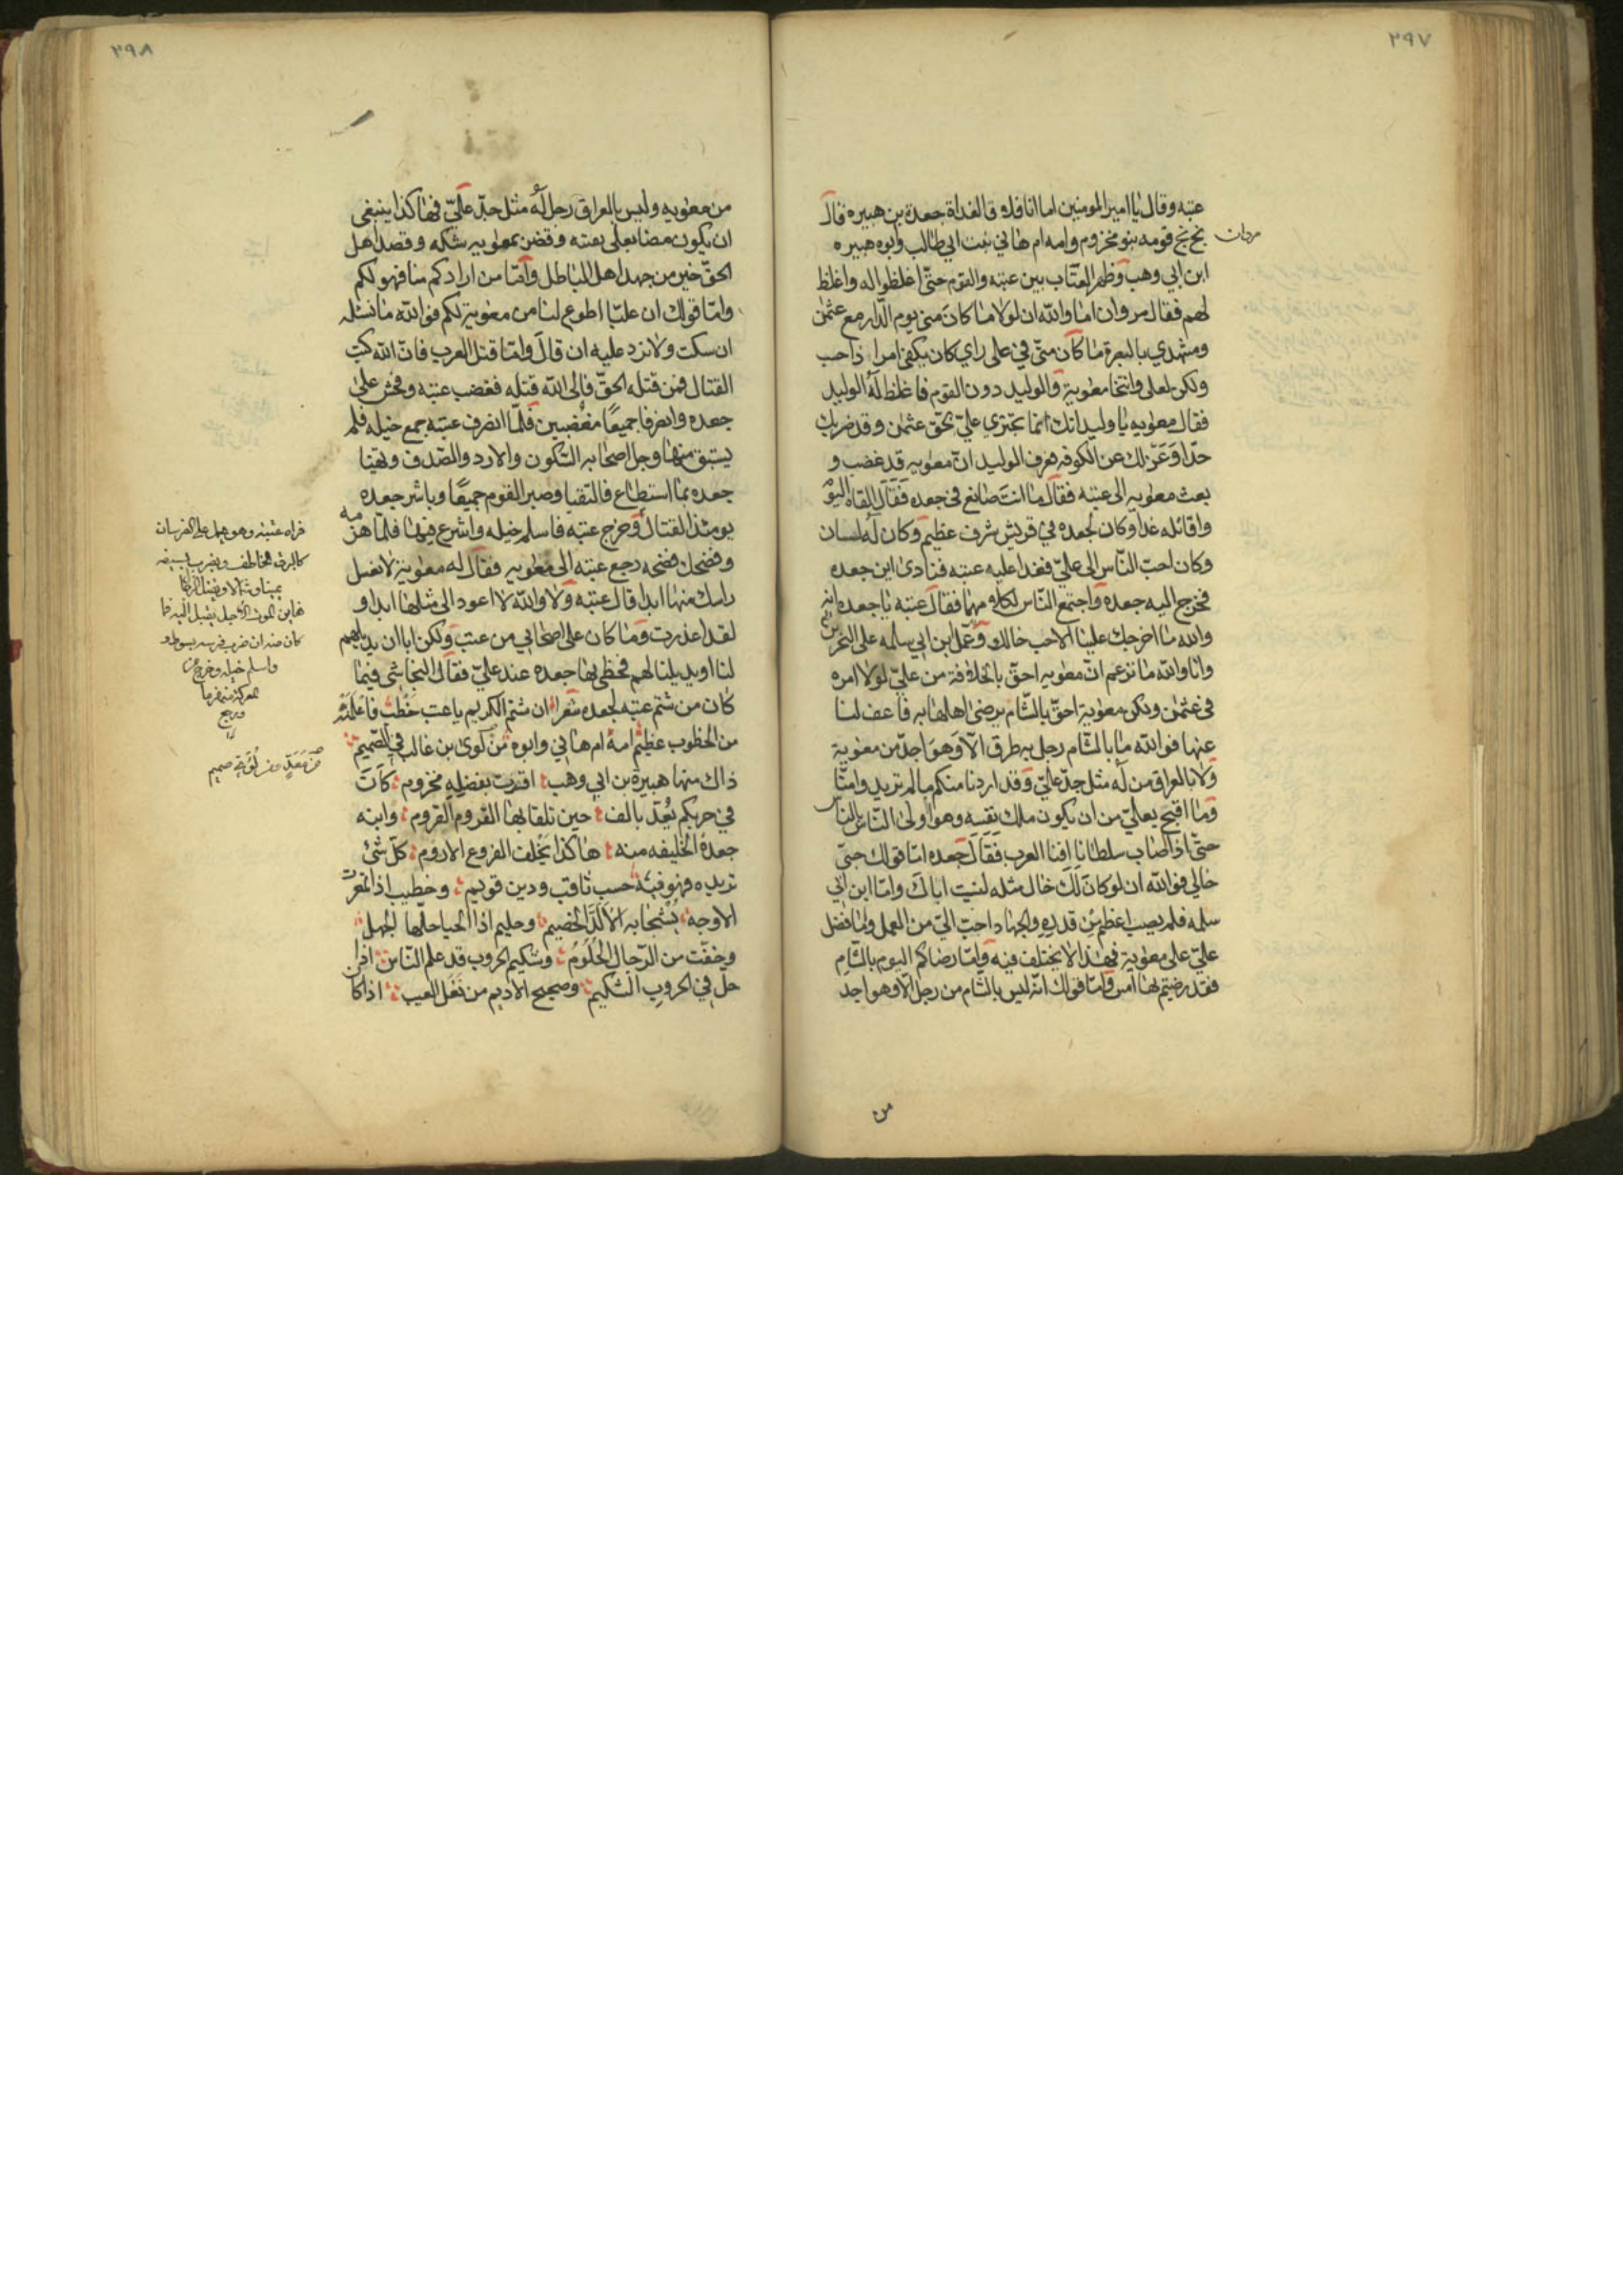 ٣٩٧
عتبه وقال يا امير المومنين اما انا فلاق الغداة جعدة بن هبيره فقال
بخ بخ قومه بنو مخزوم وامه ام هاني بنت ابي طالب وابوه هبيره
ابن ابي وهب وظهر العتاب بين عتبه والقوم حتّى اغلظوا له واغلظ
لهم فقال مروان اما والله ان لولا ما كان منى يوم الدار مع عثمن
ومشهدي بالبصرة ما كان منّي في علي راي كان يكفى امرا ذا حسب
ولكن لعل وانتخا معوية والوليد دون القوم فاغلظ له الوليد
فقال معويه يا وليد انك انما تجتري عليّ بحق عثمن وقد ضربك
حدّا وعزلك عن الكوفه فعرف الوليد انّ معويه قد غضب و
بعث معويه الى عتبه فقال ما انت صانع في جعده فقال القاه اليوم
واقاتله غدا وكان لجعده في قريش شرف عظيم وكان له لسان
وكان احبّ النّاس الى عليّ فغدا عليه عتبه فنادى اين جعده
فخرج اليه جعده واجتمع الناس لكلامهما فقال عتبة يا جعده انه
والله ما اخرجك علينا الا حب خالك وعمك ابن ابي سلمه على البحرين
وانا والله ما نزعم انّ معويه احقّ بالخلافة من عليّ لولا امره
في عثمن ولكن معوية احقّ بالشام برضى اهلها به فاعف لنا
عنها فوالله ما بالشام رجل به طرق الا وهو اجدّ من معوية
ولا بالعراق من له مثل جدّ عليّ وقد اردنا منكم ما لم تريد وامنّا
وما اقبح بعليّ من ان يكون ملك بقسه وهو اولى النّاس بالناس
حتّى اذا اصاب سلطانا افنا العرب فقال جعده امّا قولك حبّى
خالي فوالله ان لو كان لك خال مثله لنسيت اباك وامّا ابن ابي
سلمه فلم يصب اعظم من قدره والجهاد احبّ اليّ من العمل وامّا فضل
عليّ على معوية فهذا لا يختلف فيه وامّا رضاكم اليوم بالشام
فقد رضيتم بها امس وامّا قولك انّه ليس بالشام من رجل الّا وهو اجد
من
٣٩٨
من معويه وليس بالعراق رجل له مثل جدّ عليّ فهاكذا ينبغى
ان يكون مضا بعلى يقينه وقصر بمعويه شكه وقصد اهل
الحقّ خير من جهد اهل الباطل وامّا من ارادكم منا فهو لكم
وامّا قولك ان عليّا اطوع لنا من معوية لكم فوالله ما نسئله
ان سكت ولا نرد عليه ان قال وامّا قتل العرب فانّ الله كتب
القتال فمن قتله الحقّ فالى الله قتله فغضب عتبه وفحش على
جعده وانصرفا جميعًا مغضبين فلمّا انصرف عتبة جمع خيله فلم
يستبق منها وجل اصحابه السّكون والازد والصّدف وتهيّا
جعده بما استطاع فالتقيا وصبر القوم جميعًا وباشر جعده
يومئذ القتال وخرج عتبه فاسلم خيله واشرع فيهما فلمّا هزمه
وفضحك فضحه رجع عتبه الى معويه فقال له معوية لا تغسل
راسك منها ابدا قال عتبه ولا والله لا اعود الى مثلها ابدا و
لقد اعذرت وما كان على اصحابي من عتب ولكن ابا ان يديلهم
لنا او يديلنا لهم فحظى بها جعده عند عليّ فقال النجاشى فيما
كان من شتم عتبه لجعده شعرا ان شتم الكريم يا عتب خطب فاعلمنه
من الخطوب عظيم امه ام هاني وابوه من لوى بن غالب في الصّميم
ذاك منها هبيرة بن ابي وهب اقرّت بفضله مخزوم كانَ
في حربكم يُعدّ بالف حين تلقا بها القروم القروم وابنه
جعدة الخليفه منه هاكذا يخلف الفروع الاروم كلّ شئ
تريده فهو فيه حسب ثاقب ودين قويم وخطيب اذا تمعرت
الاوجه يُشجا به الالدّ الخصيم وحليم اذا الحبا حلّها الجهل
وخفّت من الرّجال الحلوم وشكيم الحروب قد علم النّاس اذا
حلّ في الحروب الشكيم وصحيح الاديم من نغل العيب اذا كان
فراه عتبه وهو يحمل على الفرسان
كالبرق الخاطف ويضرب بسيفه
يمينا وشمالا
كان منه ان ضرب فرسه بسوطه و
واسلم خيله وخرج من
المعركة منهزما
ورجع
من معد من لؤي صميم